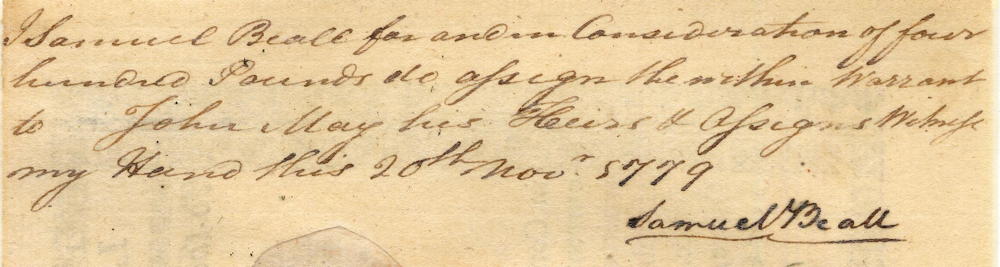 I Samuel Beall for and in Consideration of four
hundred Pounds do assign the within Warrant
to John May his Heirs & Assigns Witness
my Hand this 20th Novr 1779
Samuel Beall